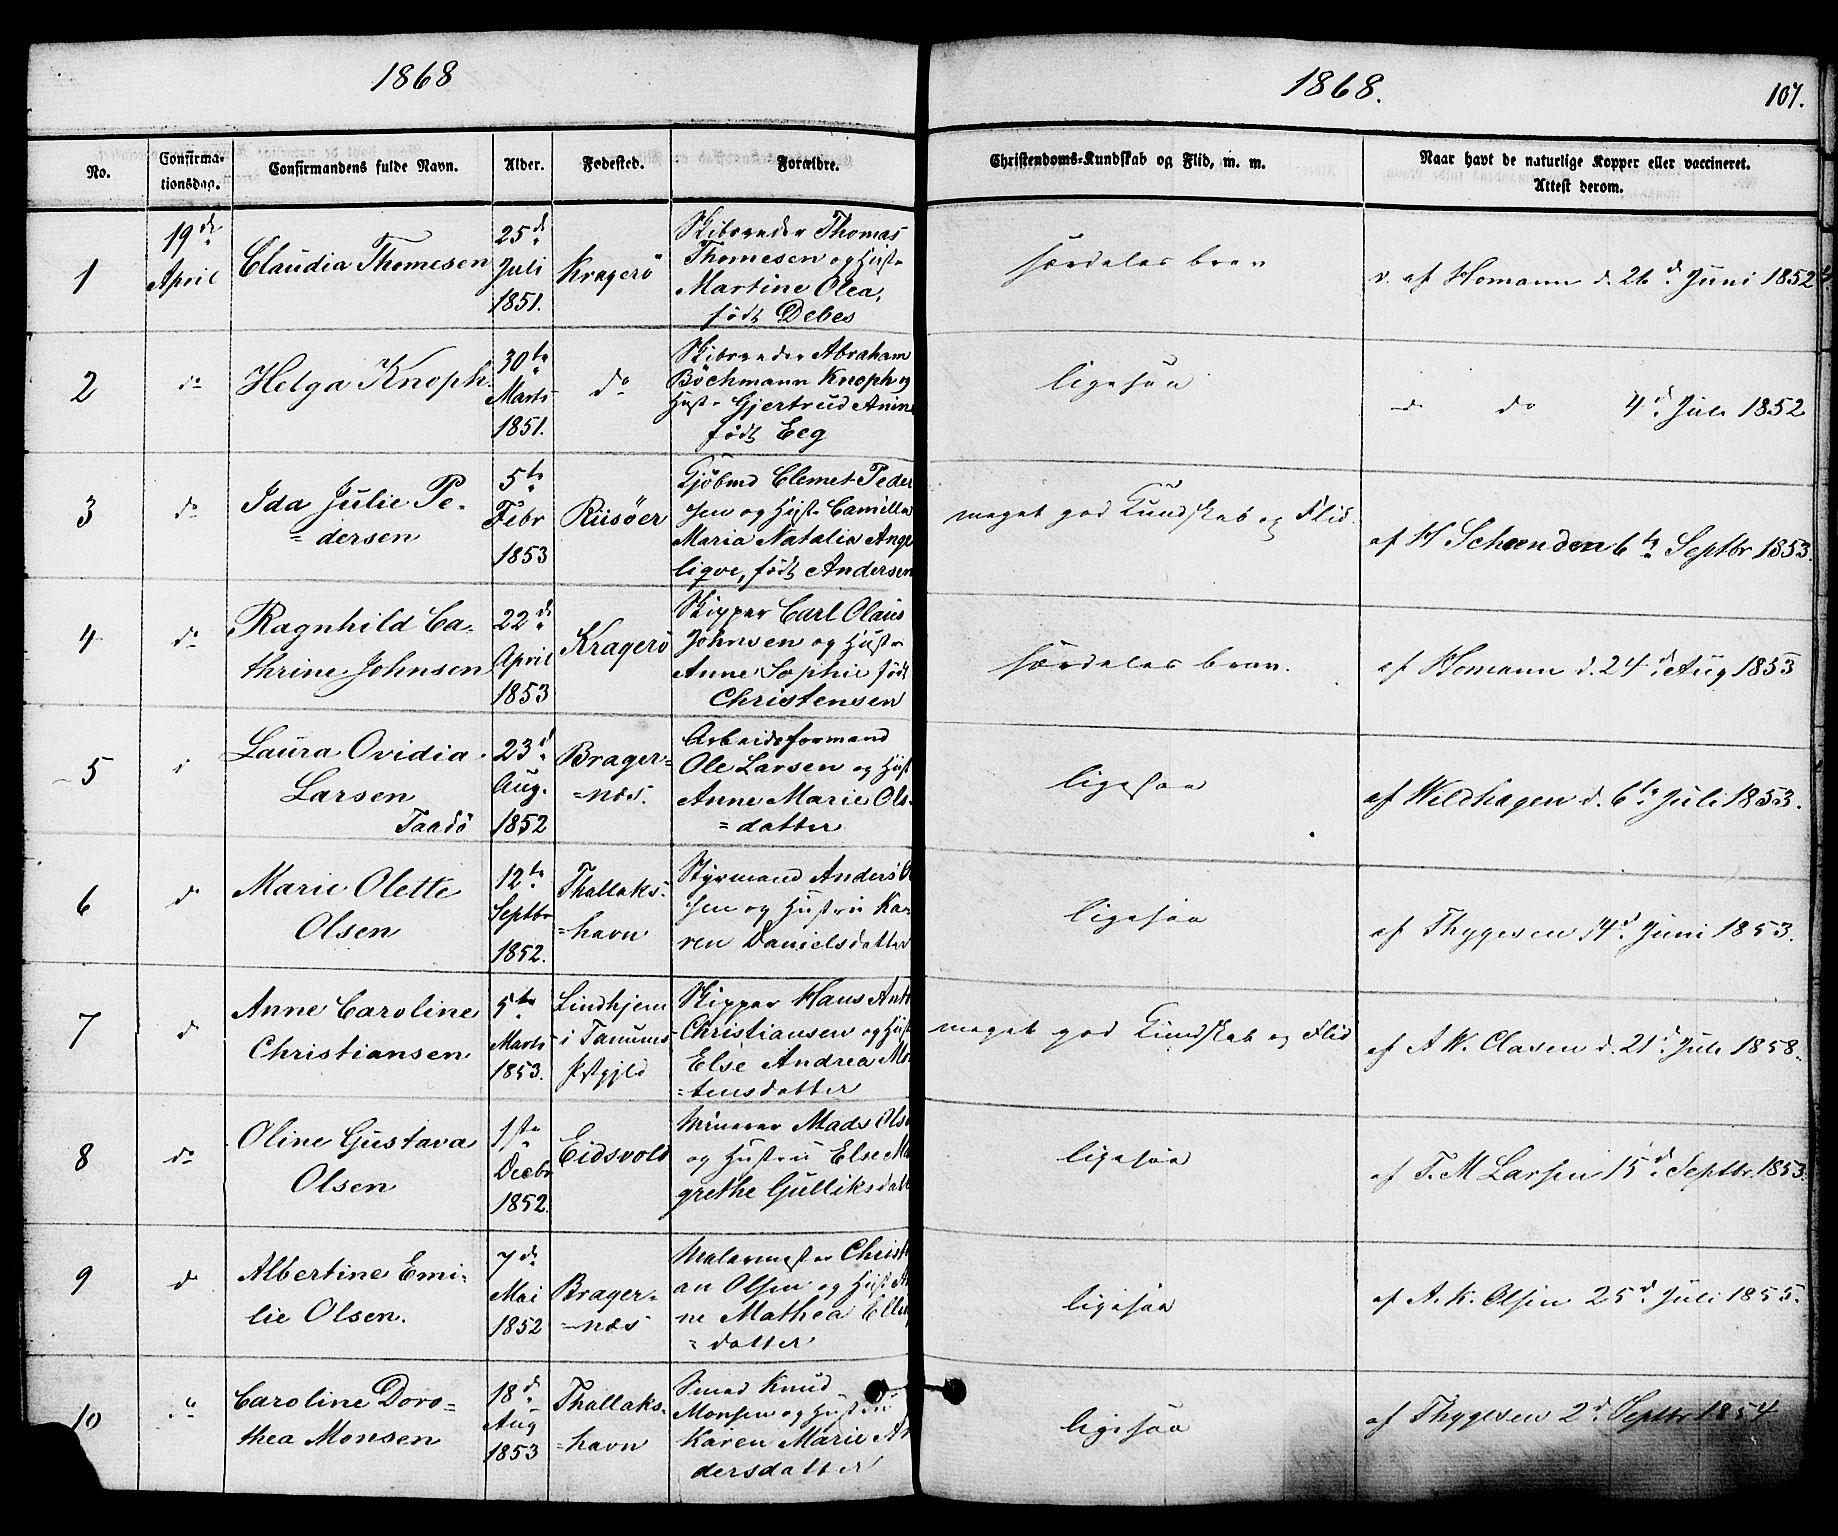 1868
1868.
107.
No.
Confirma-
tionsdag.
Confirmandens fulde Navn.
Alder.
Fødested.
Forældre.
Christendoms-Kundskab og Flid, m. m.
Naar havt de naturlige Kopper eller vaccineret.
Attest derom.
1
19de
April
Claudia Thomesen
25de
Juli
1851.
Kragerö
Skibsreder Thomas
Thomesen og Hust.
Martine Olea,
födt Debes
særdeles brav
v. af Homann d. 26d Juni 1852
2
do
Helga Knoph.
30te
Marts
1851.
do
Skibsreder Abraham
Böchmann Knoph og
Hust. Gjertrud Anine
födt Eeg
ligesaa
do 4d. Juli 1852
3
do
Ida Julie Pe-
dersen
5te
Febr
1853
Riisöer
Kjöbmd Clemet Peder
sen og Hust. Camilla
Maria Natalia Ange
liqve, födt Andersen
meget god Kundskab og Flid.
af H Scheen den 6te Septbr 1853.
4
do
Ragnhild Ca-
thrine Johnsen
22de
April
1853
Kragerö
Skipper Carl Olaus
Johnsen og Hust.
Anne Sophie födt
Christensen
særdeles brav.
af Homann d. 24d. Aug 1853
5
Laura Ovidia
Larsen
Taadö
23d
Aug.
1852
Brager=
=næs.
Arbeidsformand
Ole Larsen og Hust
Anne Marie Ols-
=datter
ligesaa
af Wildhagen d. 6te Juli 1853.
6
d
Marie Olette
Olsen
12te
Septbr
1852.
Thallaks-
=havn
Styrmand Anders O
sen og Hustru Ka-
ren Danielsdatter
ligesaa
af Thygesen 14d. Juni 1853.
7
d
Anne Caroline
Christiansen
5te
Marts
1853.
Lindhjem
i Tanums
Pstgjld
Skipper Hans Ant
Christiansen og Hust
Else Andrea Mo
=tensdatter
meget god Kundskab og Flid
af A W. Clasen d. 21d Juli 1858.
8
do
Oline Gustava
Olsen
1ste
Decbr
1852.
Eidsvold
Minerer Mads Olse
og Hustru Else Ma
grethe Gulliksdatt
ligesaa
af T. M Larsen 15d. Septbr. 1853.
9
d
Albertine Emi-
lie Olsen.
7de
Mai
1852
Brager-
=næs
Malermester Christ
an Olsen og Hust A
ne Mathea Ell
=datter
ligesaa
af A. K. Olsen 25d. Juli 1855.
10
Caroline Doro=
thea Monsen
18de
Aug
1853
Thallaks-
=havn
Smed Knud
Monsen og Hustru
Karen Marie An
dersdatter
ligesaa
af Thygesen 2d. Septbr 1854